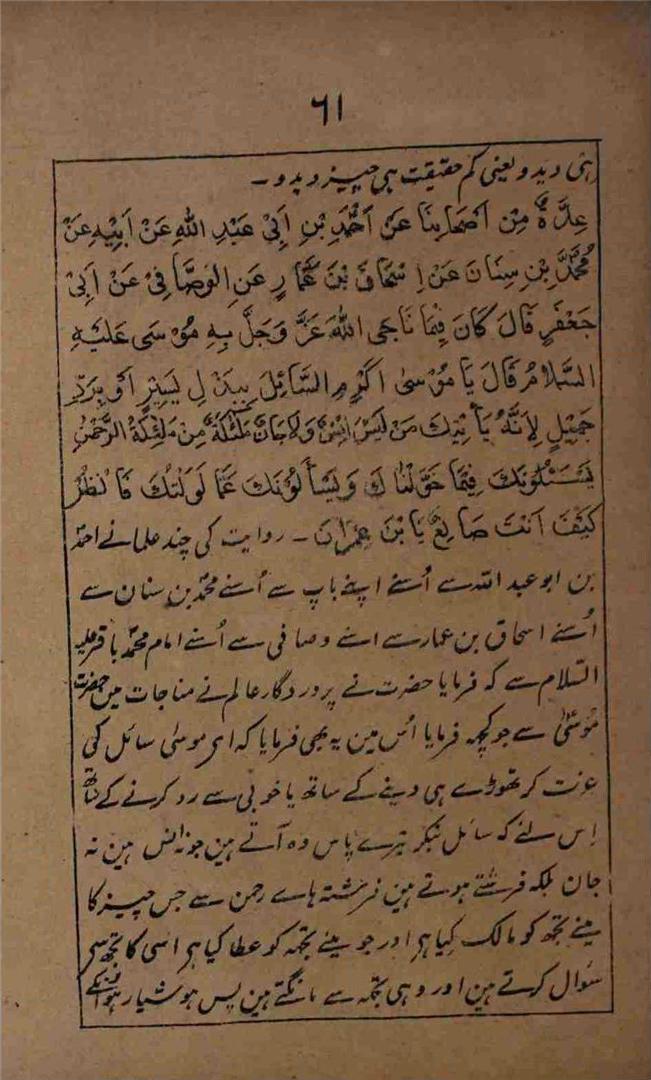 ۶۱
ہی دیدو یعنی کم حقیقت ہی چیز دیدو ۔
عِدَّةٌ مِنْ اَصْحَابِنَا عَنْ اَحْمَدَ بْنِ اَبِیْ عَبْدِ اللهِ عَنْ اَبِیْهِ عَنْ
مُحَمَّدِ بْنِ سِنَانَ عَنْ اِسْحَاقَ بْنَ عَمَّارٍ عَنِ الْوَصَّافِیْ عَنْ اَبِیْ
جَعْفَرٍ قَالَ کَانَ فِیْمَا نَاجَی اللهُ عَزَّ وَجَلَّ بِهِ مُوْسٰی عَلَیْهِ
السَّلَامُ قَالَ یَا مُوْسٰی اَکْرِمِ السَّائِلَ بِبَذْلِ یَسِیْرٍ اَوْ بِرَدِّ
جَمِیْلٍ لِاَنَّهُ یَأْتِیْكَ مَنْ لَیْسَ بِاِنْسٍ وَلَا جَانٍّ مَلٰئِکَةٌ مِنْ مَلٰئِکَةِ الرَّحْمٰنِ
یَبْلُوْنَكَ فِیْمَا خَوَّلْتُكَ وَیَسْأَلُوْنَكَ عَمَّا نَوَّلْتُكَ فَانْظُرْ
کَیْفَ اَنْتَ صَانِعٌ یَا بْنَ عِمْرَانَ ۔ روایت کی چند علما نے احمد
بن ابو عبد اللہ سے اُسنے اپنے باپ سے اُسنے محمد بن سنان سے
اُسنے اسحاق بن عمار سے اسنے وصافی سے اُسنے امام محمد باقر علیہ
السّلام سے کہ فرمایا حضرت نے پروردگار عالم نے مناجات مین حضرت
موسٰیؑ سے جو کچھ فرمایا اُس مین یہ بھی فرمایا کہ اے موسٰی سائل کی
عزت کر تھوڑے ہی دینے کے ساتھ یا خوبی سے رد کرنے کے ساتھ
اِس لئے کہ سائل بنکر تیرے پاس وہ آتے ہین جو نہ انس ہین نہ
جان بلکہ فرشتے ہوتے ہین فرشتہ ہاے رحمن سے جس چیز کا
مینے تجھ کو مالک کیا ہے اور جو مینے تجھ کو عطا کیا ہے اسی کا تجھ سے
سوال کرتے ہین اور وہی تجھ سے مانگتے ہین پس ہوشیار ہو